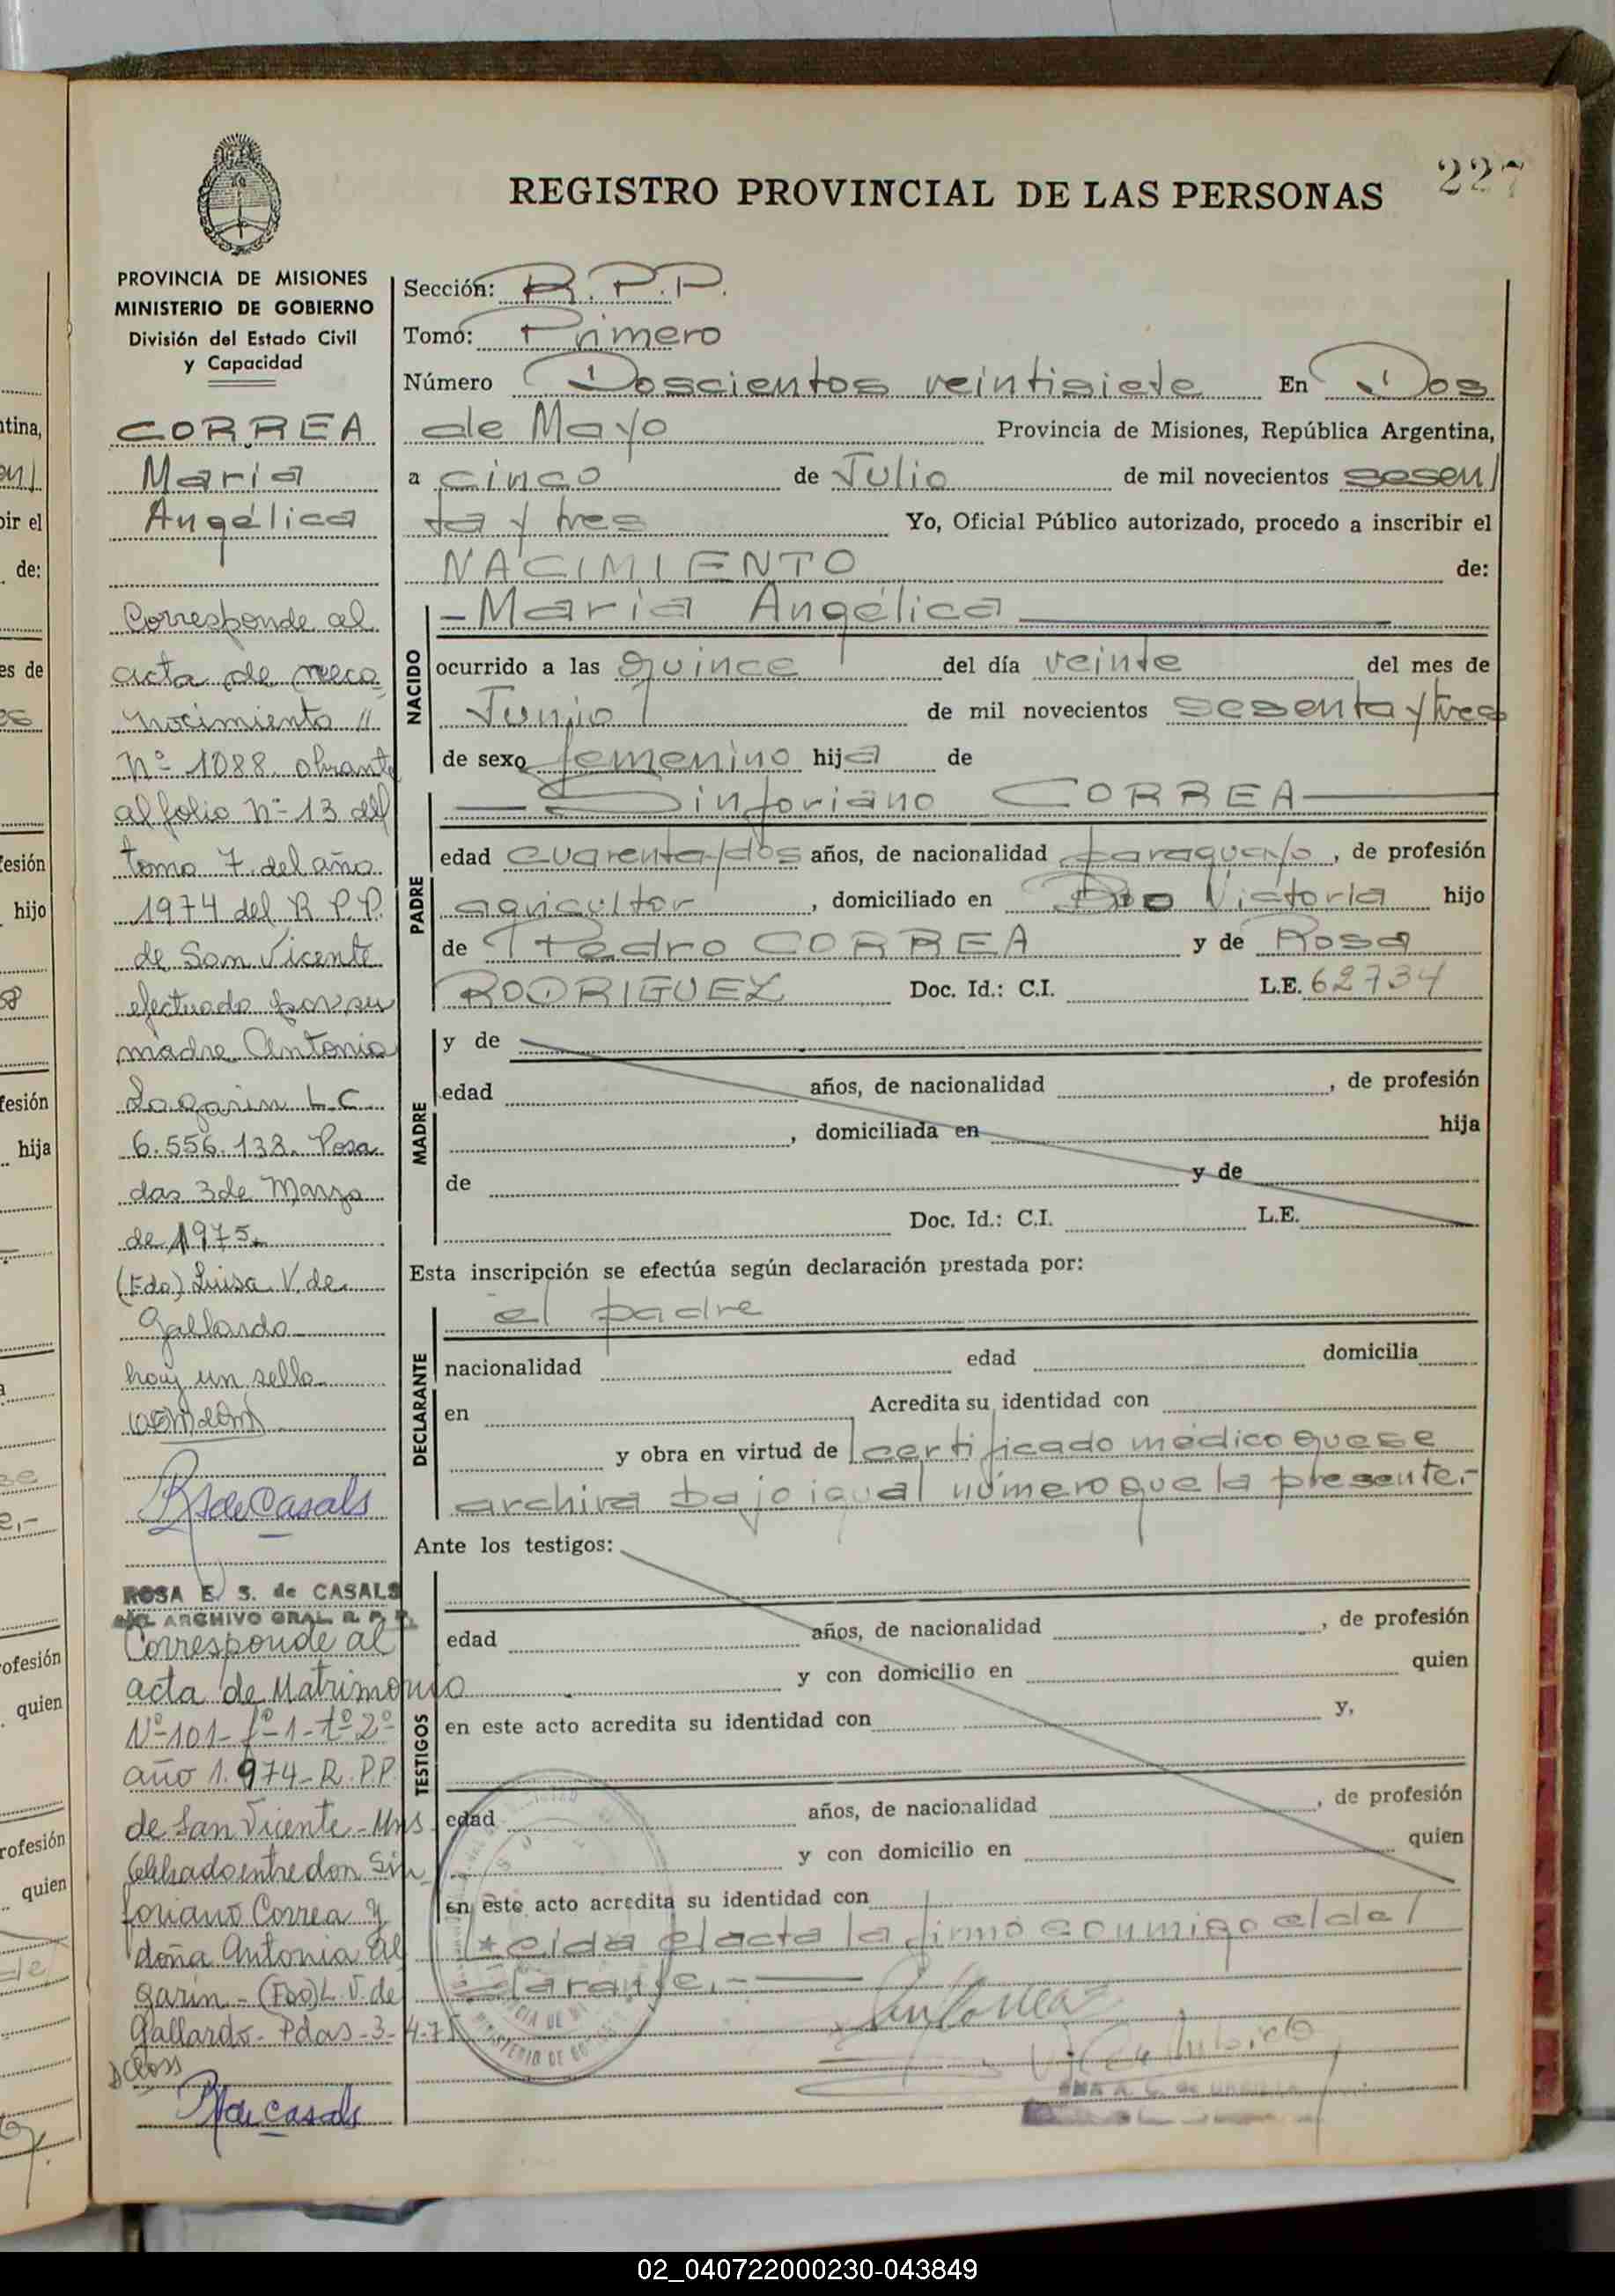 227
REGISTRO PROVINCIAL DE LAS PERSONAS
PROVINCIA DE MISIONES
MINISTERIO DE GOBIERNO
División del Estado Civil
y Capacidad
CORREA
María
Angélica
Corresponde al
acta de reco
nocimiento //
Nº 1088 obrante
al folio Nº 13 del
tomo 7 del año
1974 del R.P.P.
de San Vicente
efectuado por su
madre Antonia
L.C.
6.556.138. Posa
das 3 de Marzo
de 1975.
(Fdo) Luisa V. de
Gallardo
hay un sello
RS de Casals
ROSA E. S. de CASALS
ARCHIVO GRAL R. P. P.
Corresponde al
acta de Matrimonio
Nº 101 - fº 1 - tº 2º
año 1.974 - R.P.P.
de San Vicente - Mns
entre don Sin
foriano Correa y
doña Antonia Al
garin - (Fdo) L. V. de
Gallardo - Pdas - 3 - 4 - 7
de Casals
Sección: R.P.P.
Tomo: Primero
Número Doscientos veintisiete En Dos
de Mayo Provincia de Misiones, República Argentina,
a cinco de Julio de mil novecientos sesen/
ta y tres Yo, Oficial Público autorizado, procedo a inscribir el
NACIMIENTO de:
NACIDO
- María Angélica
ocurrido a las quince del día veinte del mes de
Junio de mil novecientos sesenta y tres
de sexo femenino hija de
PADRE
Sinforiano CORREA
edad cuarenta y dos años, de nacionalidad paraguayo, de profesión
agricultor, domiciliado en Río Victoria hijo
de Pedro CORREA y de Rosa
RODRIGUEZ Doc. Id.: C.I. L.E. 62734
MADRE
y de
edad años, de nacionalidad , de profesión
, domiciliada en hija
de y de
Doc. Id.: C.I. L.E.
Esta inscripción se efectúa según declaración prestada por:
DECLARANTE
el padre
nacionalidad edad domicilia
en Acredita su identidad con
y obra en virtud de certificado médico que se
archiva bajo igual número que la presente.-
Ante los testigos:
TESTIGOS
edad años, de nacionalidad , de profesión
y con domicilio en quien
en este acto acredita su identidad con y,
edad años, de nacionalidad , de profesión
y con domicilio en quien
en este acto acredita su identidad con
Leida el acta la firmó conmigo el de/
clarante.-
02_040722000230-043849